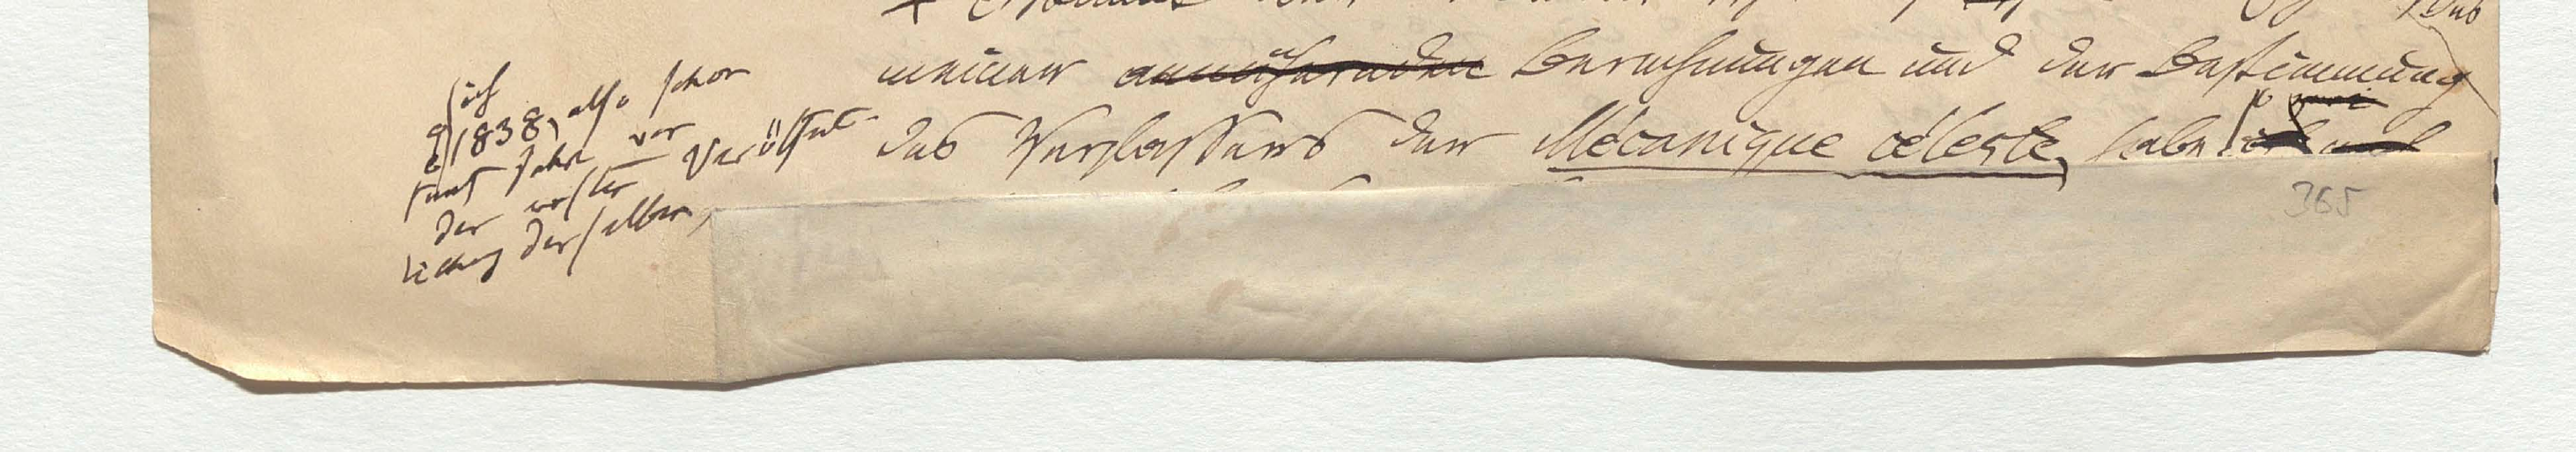 das
meiner annähernden Berechnungen und der Bestimmung
des Verfassers der Mécanique céleste, habe
ich
1838, also schon
fünf Jahre vor
der ersten Veröffent-
lichung derselben,
365